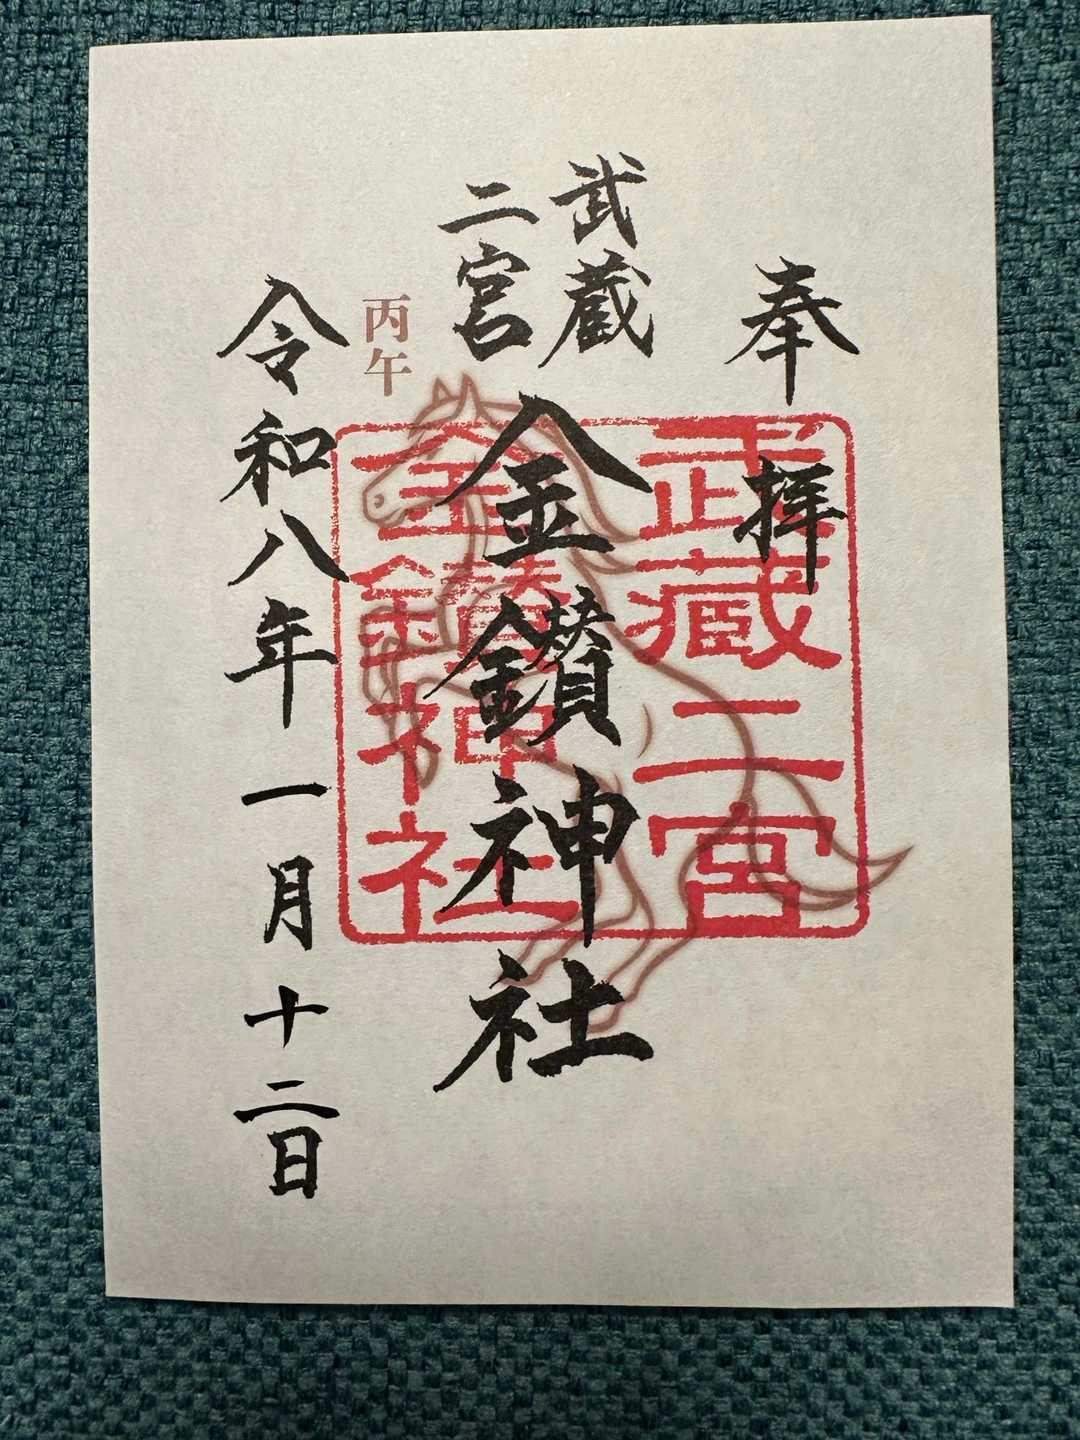 奉拝
武蔵
二宮
金鑚神社
丙午
令和八年一月十二日
武蔵二宮
金鑚神社